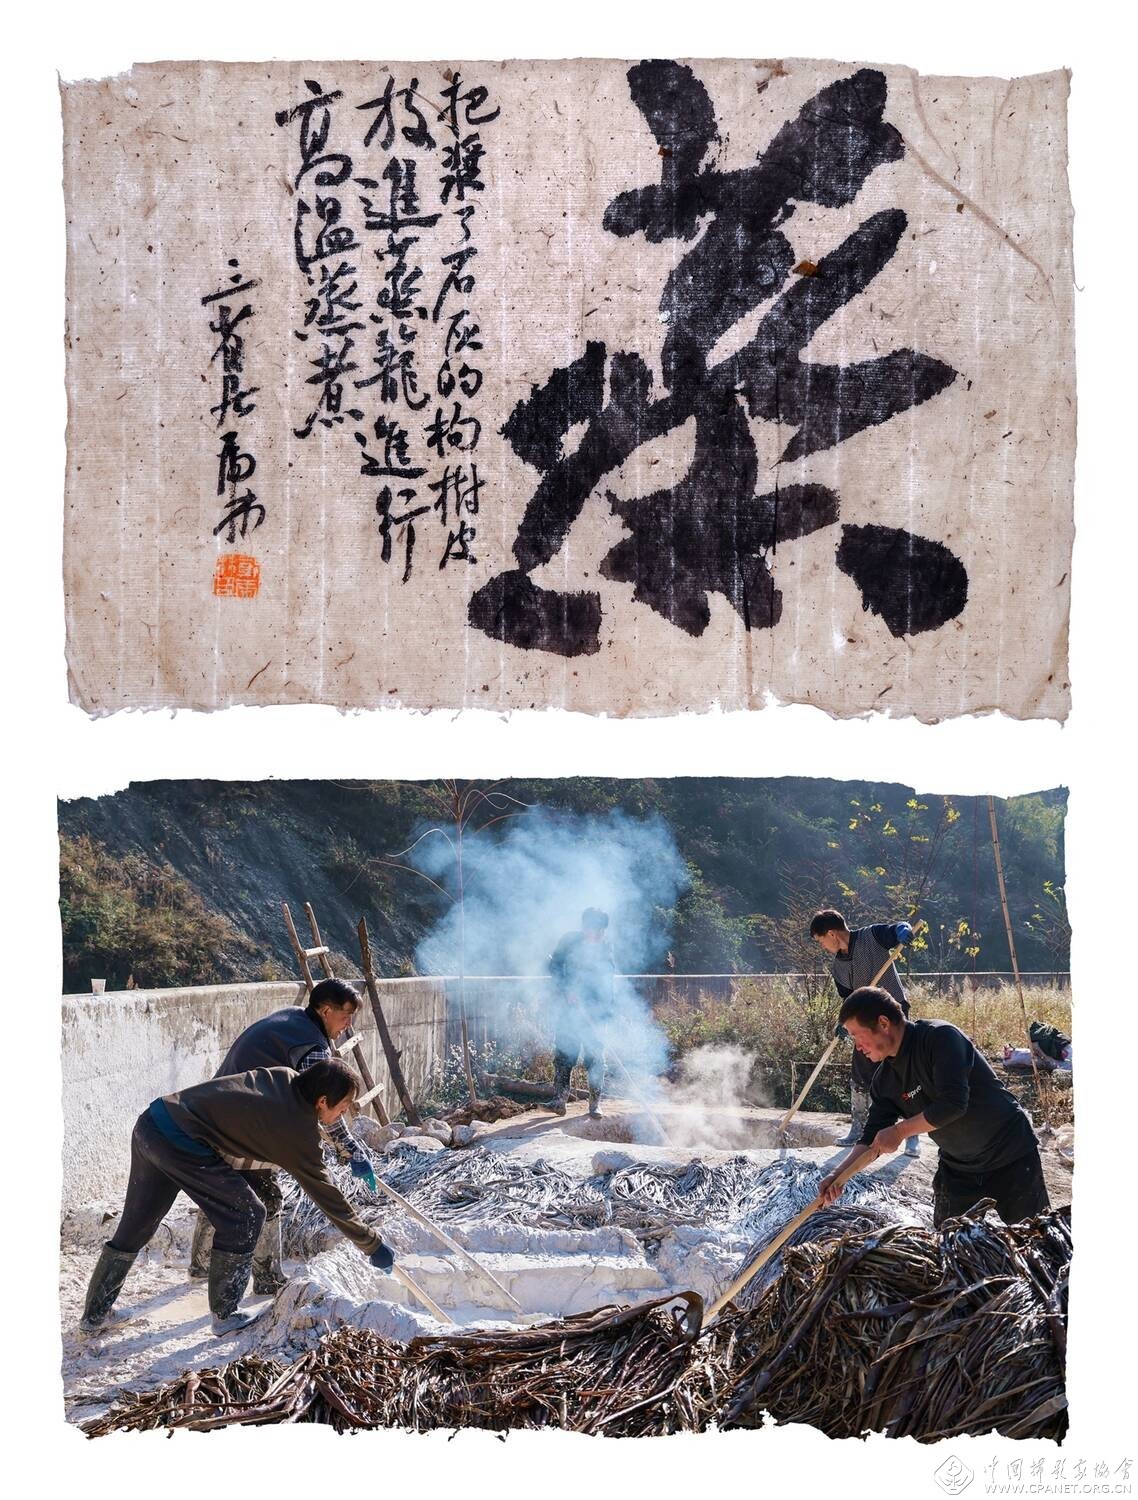 蒸
把漿了石灰的构樹皮
放進蒸籠進行
高溫蒸煮
三省居
中国摄影家协会
WWW.CPANET.ORG.CN